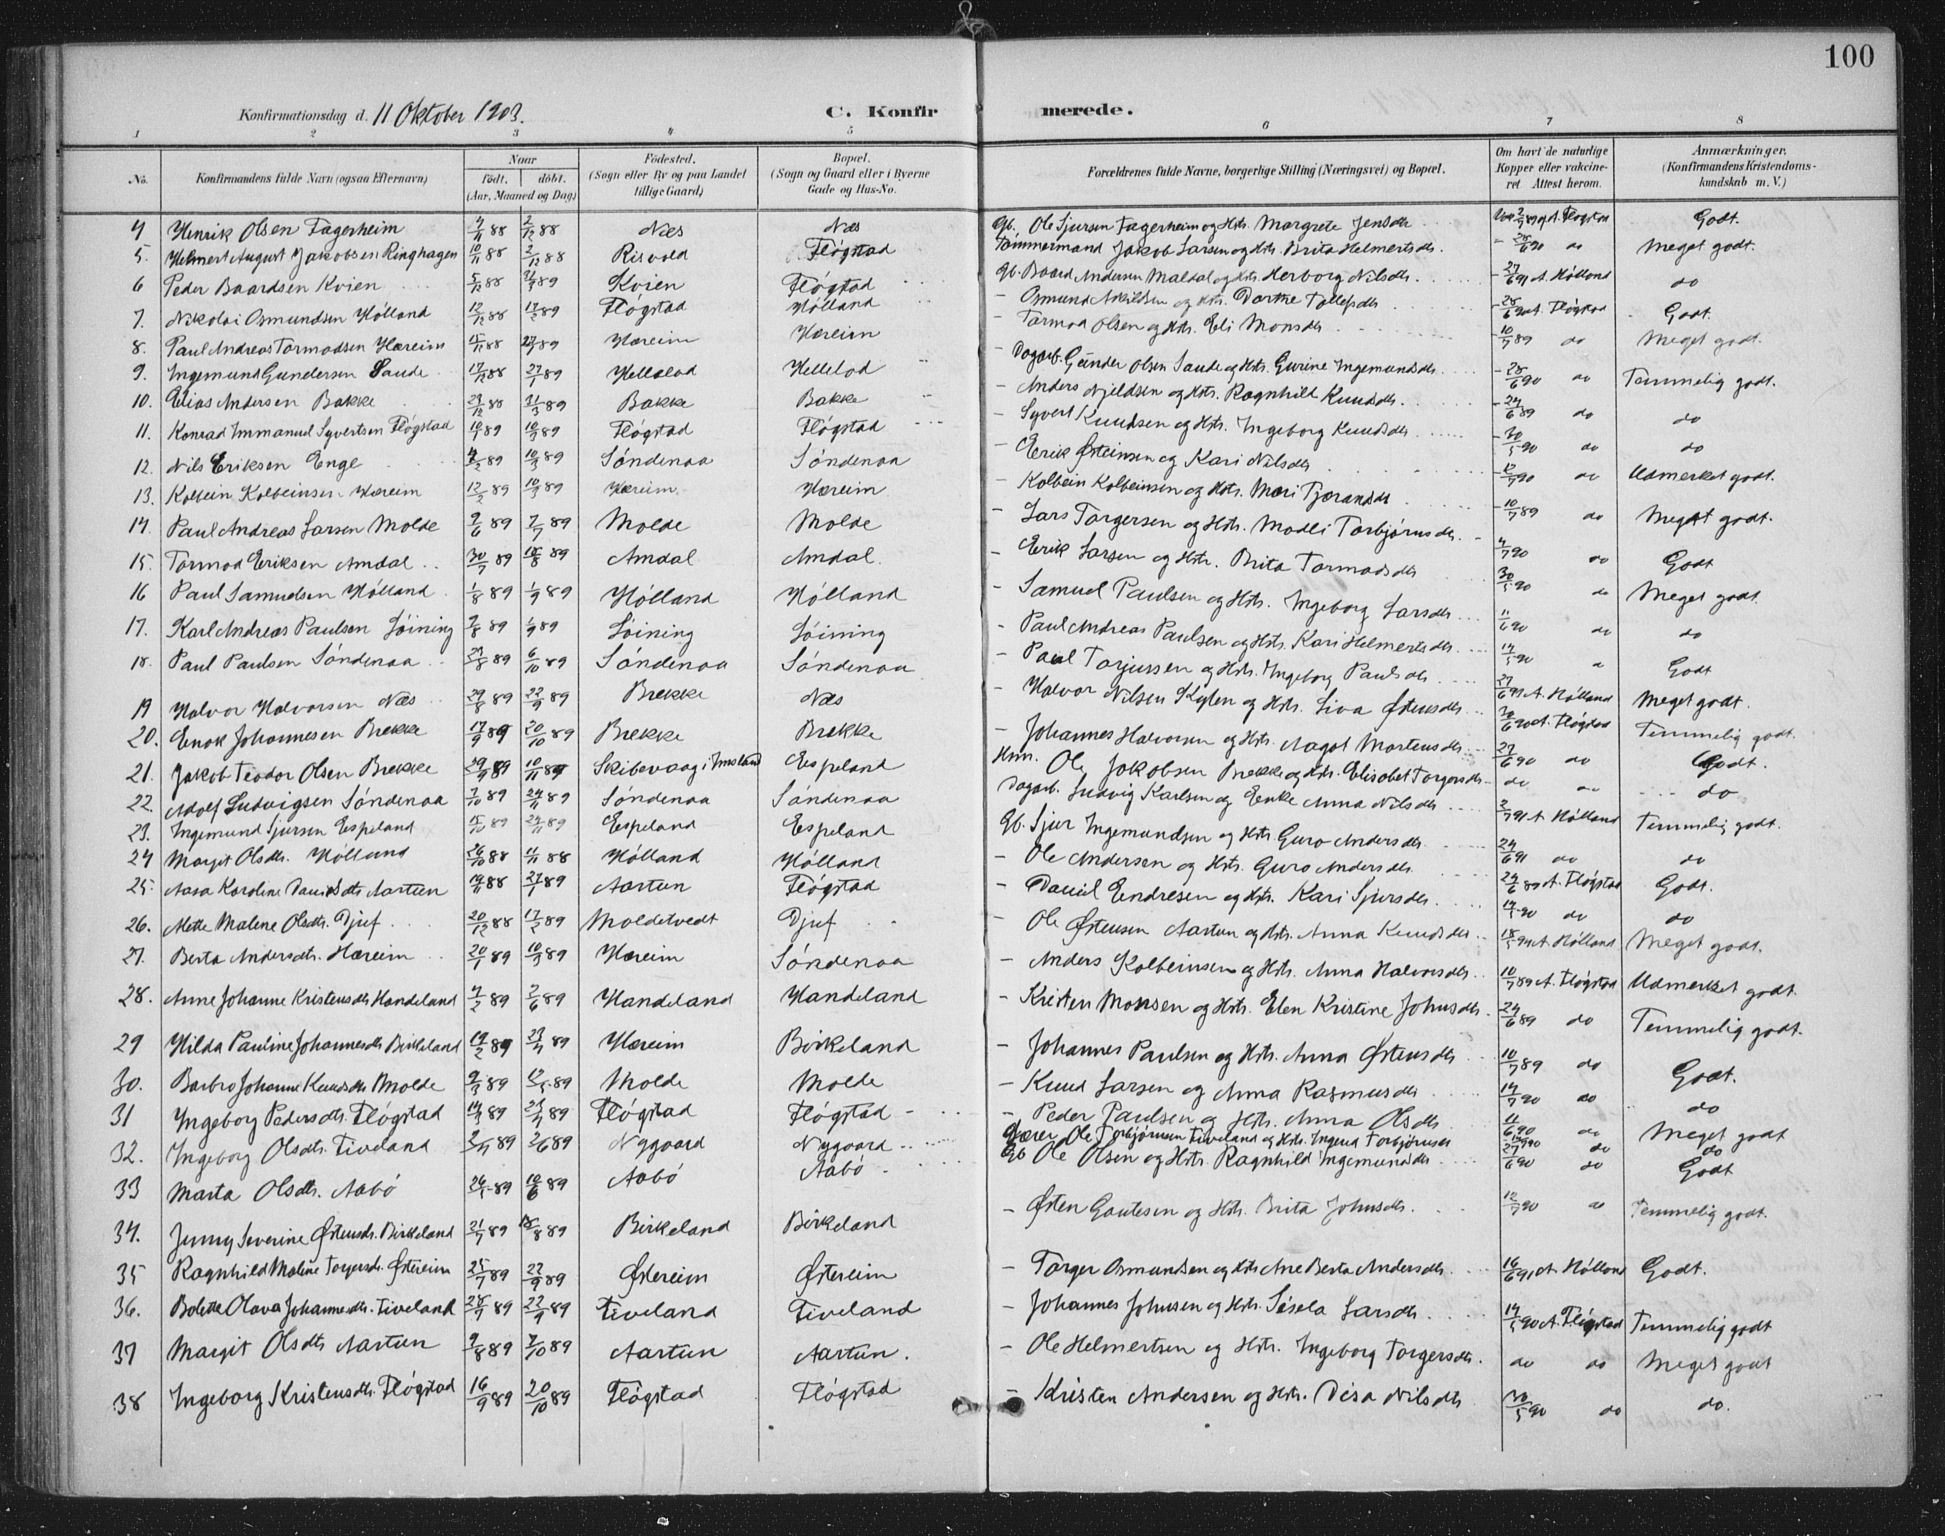 100
Konfirmationsdag d. 11 Oktober 1903. C. Konfirmerede.
1 2 3 4 5 6 7 8
No. Konfirmandens fulde Navn (ogsaa Efternavn) Naar født. døbt. (Aar, Maaned og Dag) Fødested. (Sogn eller By og paa Landet tillige Gaard) Bopæl. (Sogn og Gaard eller i Byerne Gade og Hus-No. Forældrenes fulde Navne, borgerlige Stilling (Næringsvei) og Bopæl. Om havt de naturlige Kopper eller vakcineret. Attest herom. Anmærkninger. (Konfirmandens Kristendomskundskab m. V.)
4 Henrik Olsen Fagerheim 4/11 88 2/12 88 Næs Næs Gb. Ole Sjursen Fagerheim og Hstr. Margrete Jensdtr. Godt.
5. Helmert August Jakobsen Ringhagen 10/11 88 2/12 88 Risvold Fløgstad Tømmermand Jakob Larsen og Hstr. Brita Helmertsdtr. 28/6 90 do Meget godt.
6 Peder Baardsen Kvien 5/12 88 Kvien Fløgstad Gb. Baard Andersen Maldal og Hstr. Herborg Nilsdtr. 27/6 91 A. Hølland do
7. Nikolai Osmundsen Hølland 12/12 88 17/2 89 Fløgstad Hølland – Osmund Askildsen og Hstr. Dorthe Tollefsdtr. 28/6 90 A. Fløgstad Godt.
8. Paul Andreas Tormodsen Hæreim 15/11 88 89 Hæreim Hæreim – Tormod Olsen og Hstr. Eli Monsdtr. 10/7 89 do Meget godt.
9. Ingemund Gundersen Saude 17/12 88 27/1 89 Hellelod Hellelod Dagarb. Gunder Olsen Saude og Hstr. Gurine Ingemundsdtr. 28/6 90 do Temmelig godt.
10. Elias Andersen Bakke 29/12 88 31/3 89 Bakke Bakke – Anders Njeldsen og Hstr. Ragnhild Knudsdtr. 24/6 89 do do
11. Konrad Immanuel Syvertsen Fløgstad 10/1 89 10/3 89 Fløgstad Fløgstad – Syvert Knudsen og Hstr. Ingeborg Knudsdtr. 30/5 90 do do
12. Nils Eriksen Enge 89 10/3 89 Søndenaa Søndenaa – Erik Østeinsen og Kari Nilsdtr. 12/7 90 do Udmerket godt.
13. Kolbein Kolbeinsen Hæreim 12/2 89 10/3 89 Hæreim Hæreim – Kolbein Kolbeinsen og Hstr. Mari Tjærandsdtr. 10/7 89 do Meget godt.
14 Paul Andreas Larsen Molde 9/6 89 7/7 89 Molde Molde – Lars Torgersen og Hstr. Modli Torbjørnsdtr. 4/7 90 do Godt
15. Tormod Eriksen Amdal 30/7 89 18/8 89 Amdal Amdal – Erik Larsen og Hstr. Brita Tormodsdtr 30/5 90 do Meget godt.
16 Paul Samuelsen Hølland 1/8 89 1/9 89 Hølland Hølland – Samuel Paulsen og Hstr. Ingeborg Larsdtr. 11/6 90 do do
17. Karl Andreas Paulsen Løining 7/8 89 1/9 89 Løining Løining – Paul Andreas Paulsen og Hstr. Kari Helmertsdtr. 14/5 90 Godt
18. Paul Paulsen Søndenaa 29/8 89 6/10 89 Søndenaa Søndenaa – Paul Torjussen og Hstr. Ingeborg Paulsdtr. 27/6 91 A. Hølland Meget godt.
19 Halvor Halvorsen Næs 29/8 89 22/9 89 Brekke Næs – Halvor Nilsen og Hstr. Siva Østensdtr. 90 A. Fløgstad Temmelig godt.
20. Enok Johannesen Brekke 17/9 89 20/10 89 Brekke Brekke – Johannes Halvorsen og Hstr. Aagot Mortensdtr. 27/6 90 do Godt.
21. Jakob Teodor Olsen Brekke 29/9 89 10/11 89 Skibevaag i Imsland Espeland Hmn. Ole Jakobsen Brekke og Hstr. Elisabet Torgersdtr. do do do
22. Adolf Ludvigsen Søndenaa 7/10 89 24/11 89 Søndenaa Søndenaa Dagarb. Ludvig Karlsen og Enke Anna Nilsdtr 2/7 91 A. Hølland Temmelig godt.
23. Ingemund Sjursen Espeland 15/10 89 24/11 89 Espeland Espeland Gb. Sjur Ingemundsen og Hstr Guro Andersdtr. 24/6 91 do do
24 Margit Olsdtr. Hølland 26/10 88 11/11 88 Hølland Hølland – Ole Andersen og Hstr. Guro Andersdtr. 24/6 89 A. Fløgstad Godt.
25. Aasa Karoline Danielsdtr Aartun 19/11 88 27/1 89 Aartun Fløgstad – Daniel Endresen og Hstr. Kari Sjursdtr. 14/5 90 do do
26. Mette Malene Olsdtr. Djuf 20/12 88 17/2 89 Moldetvedt Djuf – Ole Østensen Aartun og Hstr. Anna Knudsdtr. 18/5 91 A. Hølland Meget godt.
27. Berta Andersdtr. Hæreim 20/1 89 10/3 89 Hæreim Søndenaa – Anders Kolbeinsen og Hstr. Anna Halvorsdtr. 10/7 89 A. Fløgstad Udmerket godt.
28. Anne Johanne Kristensdtr Handeland 4/2 89 2/6 89 Handeland Handeland – Kristen Monsen og Hstr. Elen Kristine Johnsdtr. 24/6 89 do Temmelig godt.
29 Hilda Pauline Johannesdtr Birkeland 89 89 Hæreim Birkeland – Johannes Paulsen og Hstr. Anna Østensdtr 10/7 89 do Godt.
30. Barbro Johanne Knudsdtr Molde 9/3 89 89 Molde Molde – Knud Larsen og Anna Rasmusdtr 14/7 90 do do
31 Ingeborg Pedersdtr. Fløgstad 14/3 89 89 Fløgstad Fløgstad – Peder Paulsen og Hstr. Anna Olsdtr 11/6 90 do Meget godt
32. Ingeborg Olsdtr. Tiveland 89 2/6 89 Nygaard Nygaard Ole Torbjørnsen Tiveland og Hstr. Ingerid Torbjørnsdtr do do
33 Marta Olsdtr. Aabø 26/5 89 10/6 89 Aabø Aabø Gb Ole Olsen og Hstr. Ragnhild Ingemundsdtr 27/6 90 do Godt
34. Jenny Severine Østensdtr. Birkeland 21/7 89 18/8 89 Birkeland Birkeland – Østen Gautesen og Hstr. Brita Johnsdtr. 12/7 90 do Temmelig godt.
35 Ragnhild Maline Torgersdtr. Østereim 25/7 89 22/9 89 Østereim Østereim – Torger Osmundsen og Hstr Ane Berta Andersdtr. 16/6 91 A. Hølland Godt.
36. Bolette Olava Johannesdtr. Tiveland 28/7 89 22/9 89 Tiveland Tiveland – Johannes Johnsen og Hstr. Sisela Larsdtr. 14/5 90 A. Fløgstad Temmelig godt
37 Margit Olsdtr Aartun 9/8 89 7/10 89 Aartun Aartun. – Ole Helmertsen og Hstr. Ingeborg Torgersdtr. do do Meget godt
38 Ingeborg Kristensdtr. Fløgstad 16/9 89 20/10 89 Fløgstad Fløgstad – Kristen Andersen og Hstr. Disa Nilsdtr 30/5 90 do do.